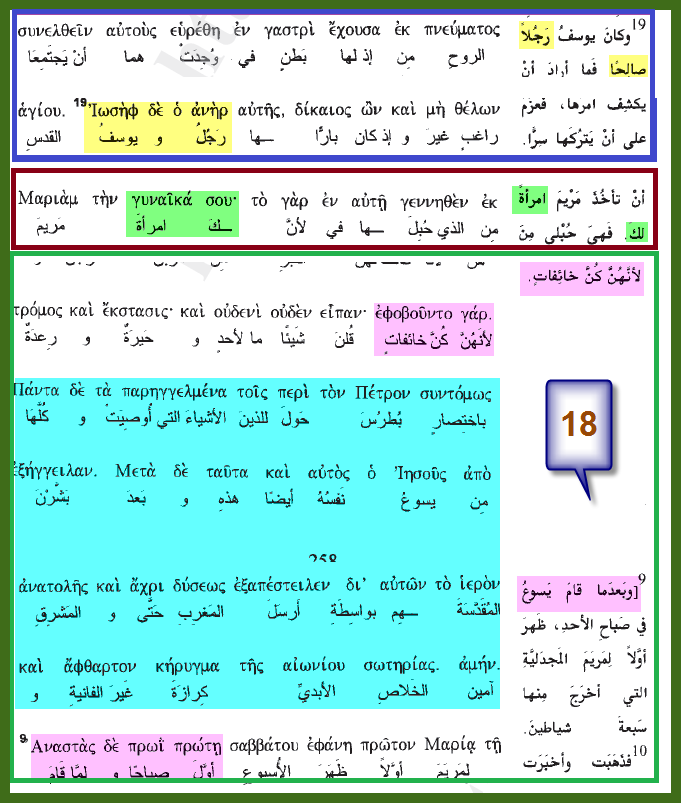 συνελθεῖν αὐτοὺς εὑρέθη ἐν γαστρὶ ἔχουσα ἐκ πνεύματος
الروحِ مِن إذ لها بَطنٍ في وُجِدَتْ هما أنْ يَجتَمعَا
ἁγίου. 19 Ἰωσὴφ δὲ ὁ ἀνὴρ αὐτῆς, δίκαιος ὢν καὶ μὴ θέλων
راغبٍ غيرَ و إذ كان بارًّا ـها رَجُلُ و يوسفُ القدس
19 وكانَ يوسفُ رَجُلاً
صالِحًا فَما أرادَ أنْ
يكشِفَ امرها، فعزمَ
على أنْ يَترُكَها سِرًّا.
Μαριὰμ τὴν γυναῖκά σου· τὸ γὰρ ἐν αὐτῇ γεννηθὲν ἐκ
مِن الذي حُبِلَ ـها في لأنَّ ـكَ امرأةَ مَريمَ
أنْ تأخُذَ مَرْيمَ امرأةً
لكَ. فَهِيَ حُبْلى مِنَ
τρόμος καὶ ἔκστασις· καὶ οὐδενὶ οὐδὲν εἶπαν· ἐφοβοῦντο γάρ.
لأنَهُنَّ كُنَّ خائفاتٍ قُلنَ شَيئًا ما لأحدٍ و حَيرَةٌ و رِعدَةٌ
لأنَّهُنَّ كُنَّ خائِفاتٍ.
Πάντα δὲ τὰ παρηγγελμένα τοῖς περὶ τὸν Πέτρον συντόμως
باختِصارٍ بُطرُسَ حَولَ للذينَ الأشياءَ التي أُوصِيَتْ و كُلَّهَا
ἐξήγγειλαν. Μετὰ δὲ ταῦτα καὶ αὐτὸς ὁ Ἰησοῦς ἀπὸ
مِن يسوعُ نَفسُهُ أيضًا هذهِ و بَعدَ بَشَّرْنَ
258
ἀνατολῆς καὶ ἄχρι δύσεως ἐξαπέστειλεν δι' αὐτῶν τὸ ἱερὸν
المُقَدَّسَةَ ـهِم بواسِطَةِ أرسلَ المَغربِ حَتَّى و المَشرِقِ
καὶ ἄφθαρτον κήρυγμα τῆς αἰωνίου σωτηρίας. ἀμήν.
آمين الخَلاصِ الأبديِّ كِرازةَ غَيرَ الفانيةِ و
9 Ἀναστὰς δὲ πρωῒ πρώτῃ σαββάτου ἐφάνη πρῶτον Μαρίᾳ τῇ
لمَريَمَ أوَّلاً ظَهَرَ الأُسبوعِ أوَّلَ صباحًا و لمَّا قَامَ
18
9 [وبَعدَما قامَ يَسوعُ
في صَباحِ الأحدِ، ظَهَرَ
أوَّلاً لِمَريَمَ المَجدَليَّةِ
التي أخرَجَ مِنها
سَبعةَ شياطينَ.
10 فذَهَبَت وأخبَرَت